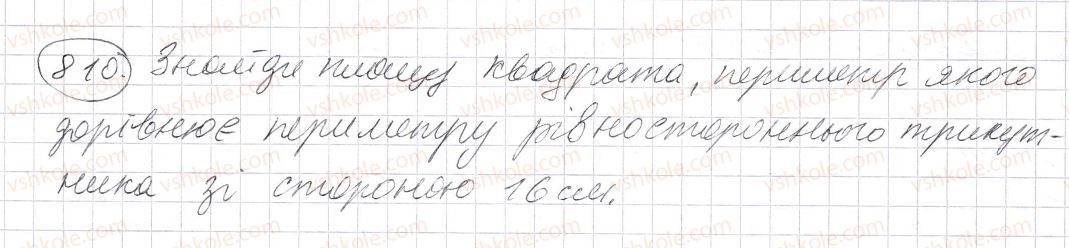 810. Знайди площу квадрата, периметр якого
дорівнює периметру рівностороннього трикут-
ника зі стороною 16 см.